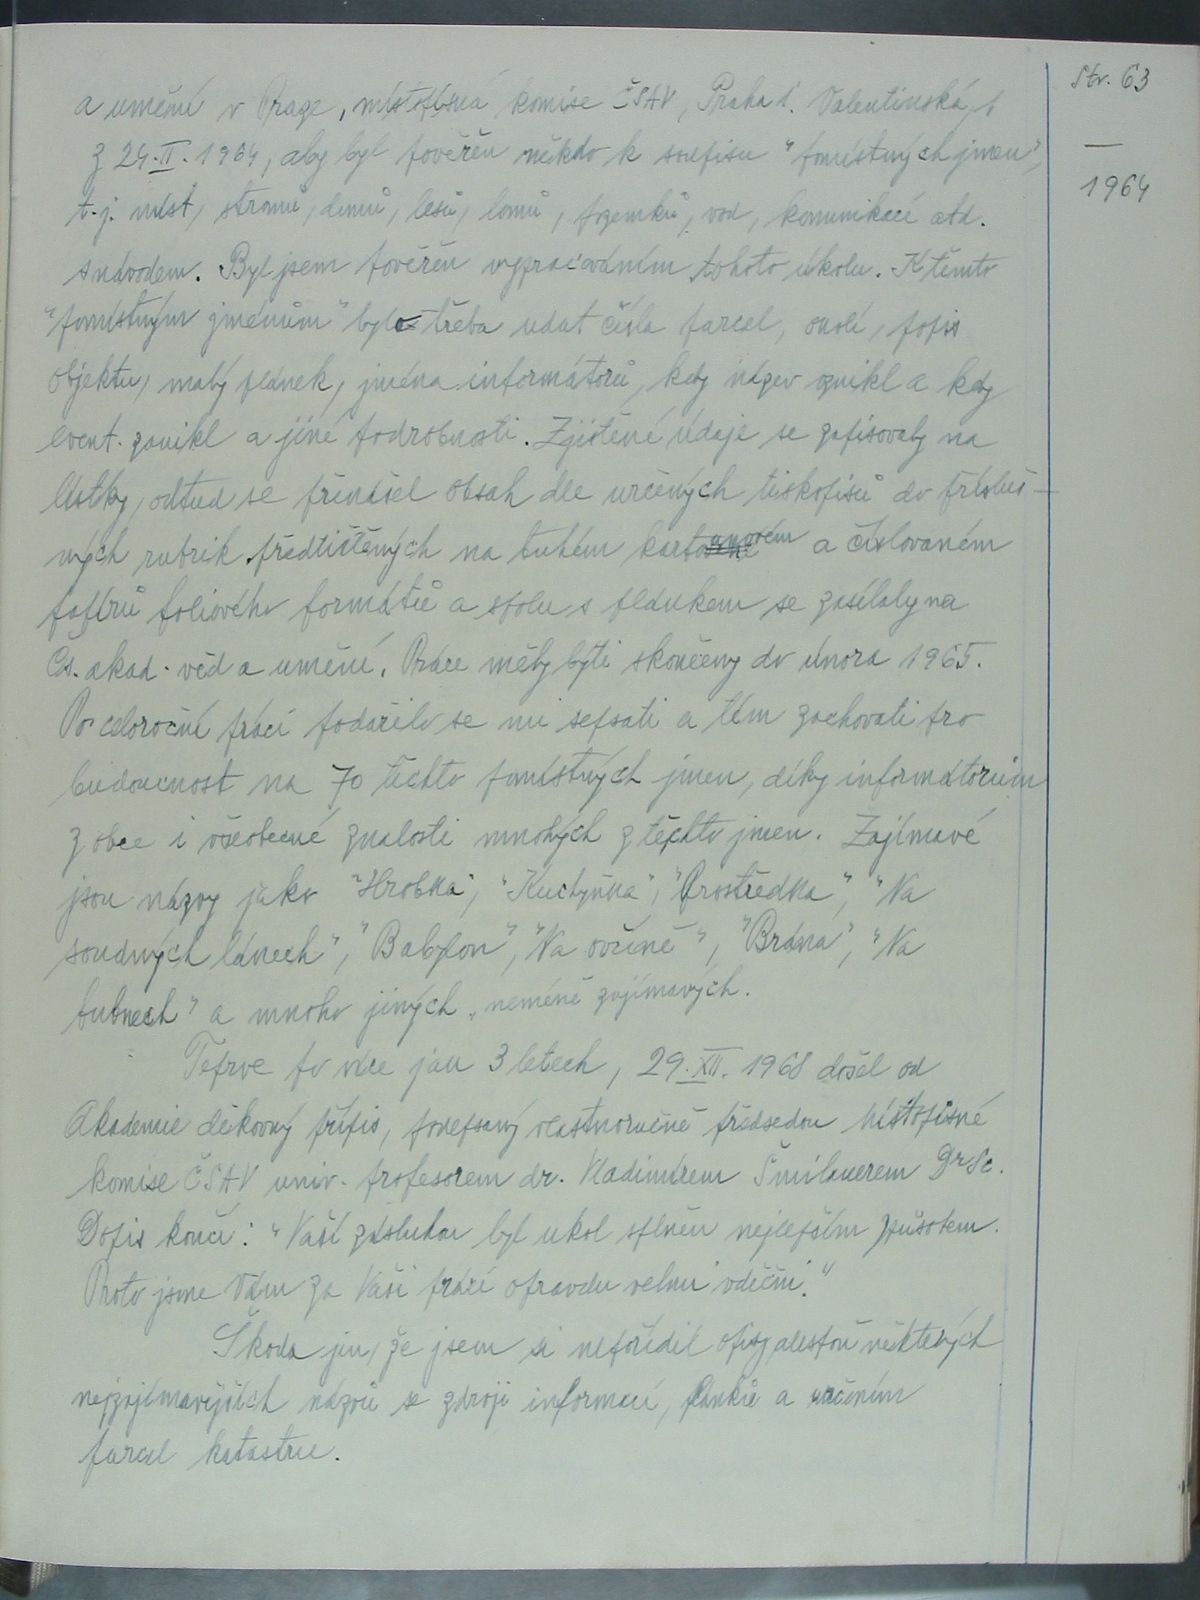 Str. 63
—
1964
a umění v Praze, místopisná komise ČSAV, Praha 1. Valentinská 1
z 24.II.1964, aby byl pověřen někdo k soupisu "pomístných jmen",
t.j. míst, stromů, domů, lesů, lomů, pozemků, vod, komunikací atd.
s návodem. Byl jsem pověřen vypracováním tohoto úkolu. K těmto
"pomístným jménům" bylo třeba udat čísla parcel, okolí, popis
objektu, malý plánek, jména informátorů, kdy název vznikl a kdy
event. zanikl a jiné podrobnosti. Zjištěné údaje se zapisovaly na
lístky, odtud se přenášel obsah dle určených tiskopisů do přísluš-
ných rubrik předtištěných na tuhém kartonovém a číslovaném
papírů foliového formátů a spolu s plánkem se zasílaly na
Čs. akad. věd a umění. Práce měly býti skončeny do února 1965.
Po celoroční práci podařilo se mi sepsati a tím zachovati pro
budoucnost na 70 těchto pomístných jmen, díky informátorům
z obce i všeobecné znalosti mnohých z těchto jmen. Zajímavé
jsou názvy jako "Hrobka", "Kuchyňka", "Prostředka", "Na
soudných lánech", "Babylon", "Na ovčíně", "Brána", "Na
bubnech" a mnoho jiných, neméně zajímavých.
Teprve po více jau 3 letech, 29.XII.1968 došel od
Akademie děkovný přípis, podepsaný vlastnoručně předsedou Místopisné
komise ČSAV univ. profesorem dr. Vladimírem Šmilauerem DrSc.
Dopis končí: "Vaší zásluhou byl ukol splněn nejlepším způsobem.
Proto jsme Vám za Vaši práci opravdu velmi vděčni."
Škoda jen, že jsem si nepořídil opisy alespoň některých
nejzajímavějších názvů se zdroji informací, plánků a určením
parcel katastru.